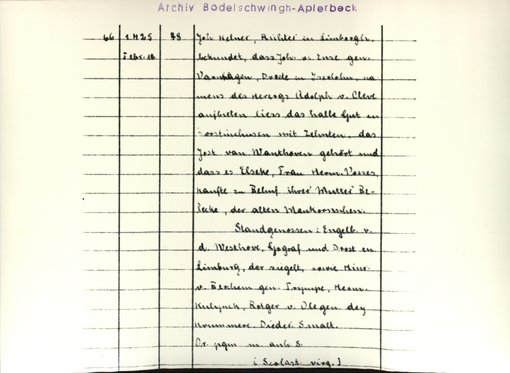 Archiv Bodelschwingh-Aplerbeck
66 1425 78 Joh Kelner, Richter in Limborgh,
Febr. 18 bekundet, dass Joh. v. Ense gen.
Varnhagen, Droste in Iserlohn, na
mens des Herzogs Adolph v. Cleve
aufbieten liess das halbe Gut en
mit Zehnten, das
Jost van Wanthoven gehört und
dass es Elseke, Frau Herm. Vosses,
kaufte zu Behuf ihrer Mutter Be-
leke, der alten
Standgenossen: Engelb. v.
d. Westhove, Gograf und Drost en
Limburg, der siegelt, sowie Hinr.
v. gen. Trympe, Herm.
Rotger v. gen. dey
Krummere, Dieder. Smalt.
Or. pgm m anh S.
( Scolast. virg. )